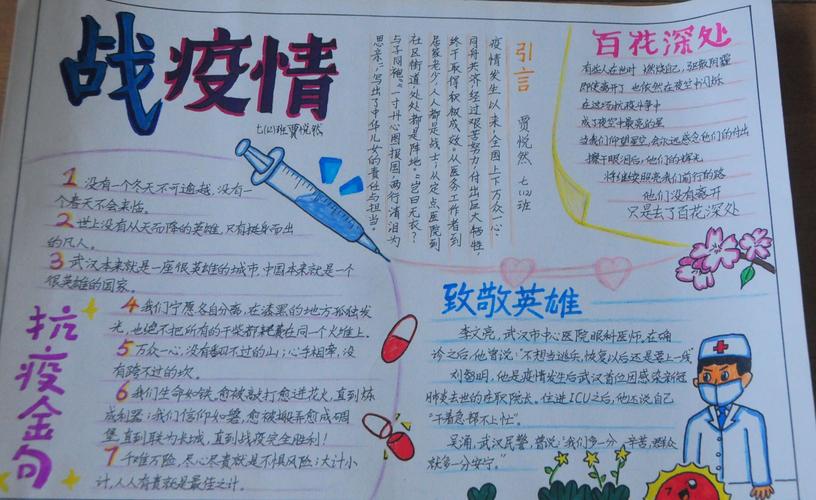 战疫情
七(1)班贾悦然
1 没有一个冬天不可逾越,没有一
个春天不会来临。
2 世上没有从天而降的英雄,只有挺身而出
的凡人。
3 武汉本来就是一座很英雄的城市,中国本来就是一个
很英雄的国家。
抗疫金句
4 我们宁愿各自分离,在漆黑的地方孤独发
光,也绝不把所有的干柴都在同一个火堆上。
5 万众一心,没有翻不过的山;心手相牵,没
有跨不过的坎。
6 我们生命如铁,愈被敲打愈进花火,直到炼
成利器;我们信仰如磐,愈被搬弄愈成碉
堡,直到联为长城,直到战疫完全胜利!
7 千难万险,尽心尽责就是不惧风险;大计小
计,人人有责就是最佳之计。
引言
贾悦然 七(1)班
疫情发生以来,全国上下万众一心、
同舟共济,经过艰苦努力,付出巨大牺牲,
终于取得积极成效。从医务工作者到
居家老少,人人都是战士;从定点医院到
社区街道,处处都是阵地。“岂曰无衣?
与子同袍。”“一寸丹心图报国,两行清泪为
思亲。”写出了中华儿女的责任与担当。
百花深处
有些人在世时 燃烧自己,驱散阴霾
即使离开了 也依然在夜空中闪烁
在这场抗疫斗争中
成了夜空中最亮的星
当我们仰望星空,会永远感念他们的付出
擦干眼泪后,他们的辉光
将继续照亮我们前行的路
他们没有离开
只是去了百花深处
致敬英雄
李文亮,武汉市中心医院眼科医师,在确
诊之后,他曾说:“不想当逃兵,恢复以后还是要上一线”
刘智明,他是疫情发生后武汉首位因感染新冠
肺炎去世的在职院长。住进ICU之后,他还说自己
“干着急帮不上忙”。
吴涌,武汉民警,曾说:“我们多一分辛苦,群众
就多一分安宁。”